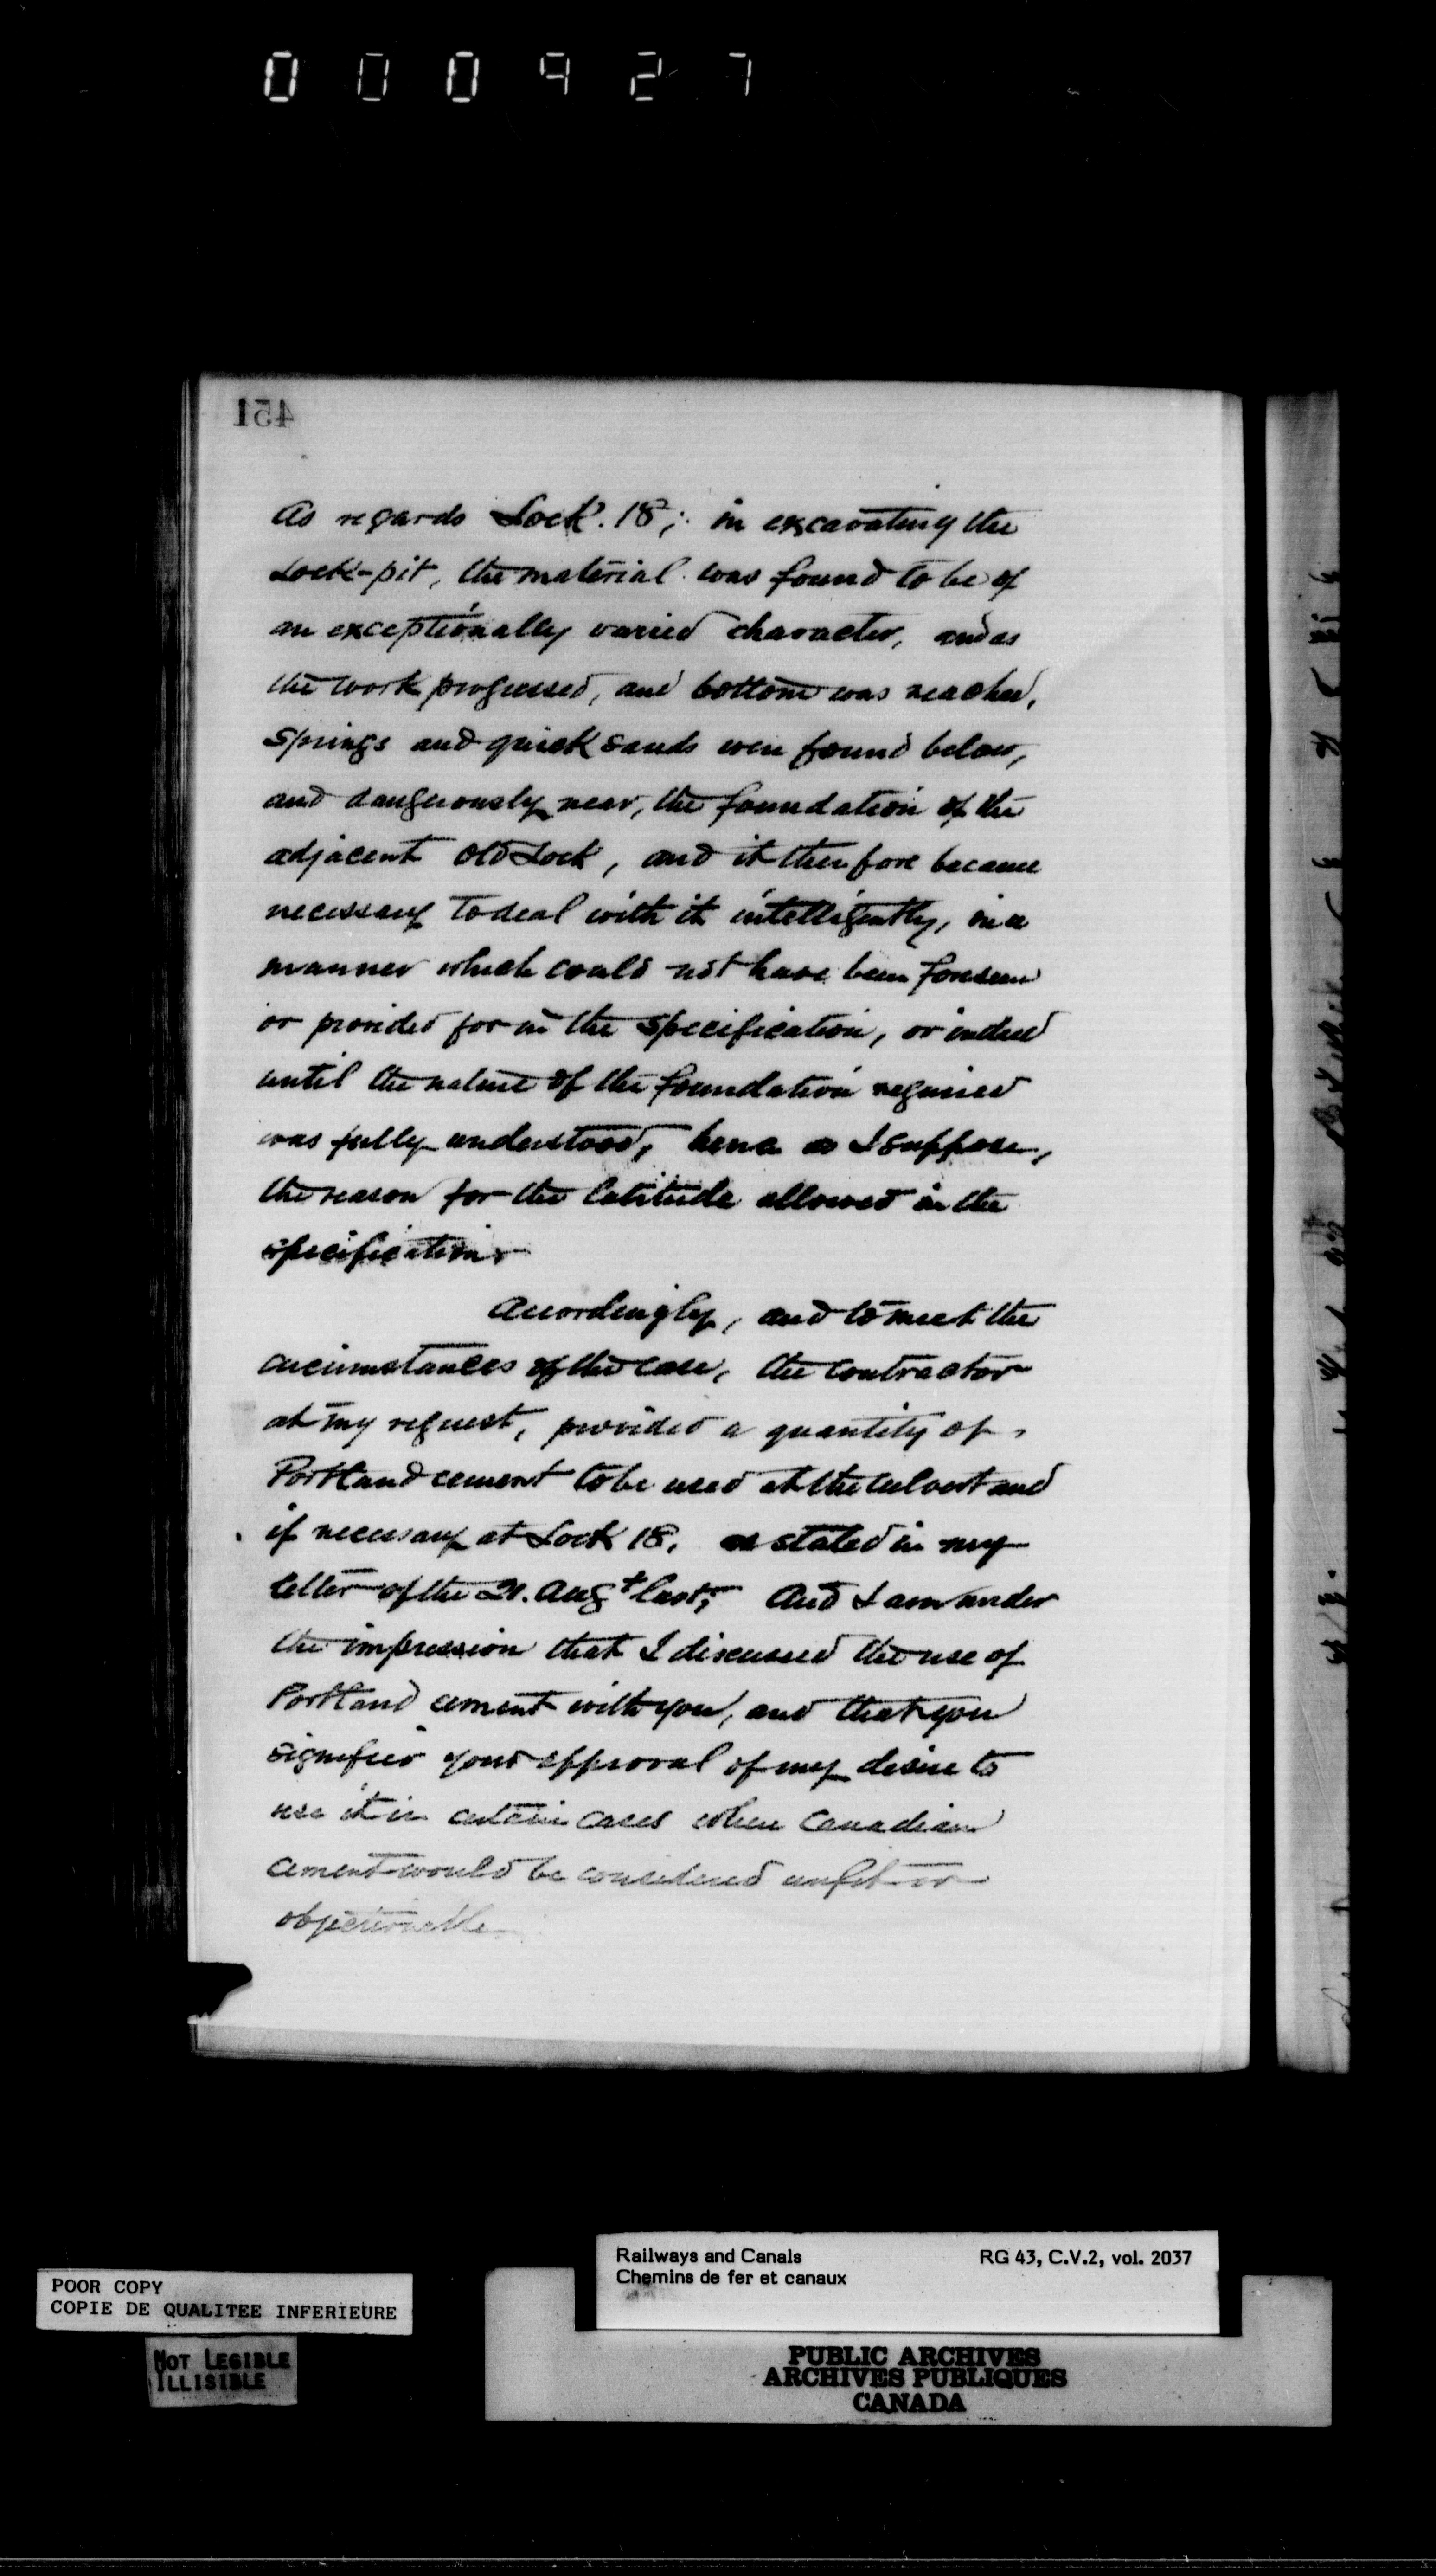 000927
451
As regards Lock. 18; in excavating the
Lock-pit, the material was found to be of
an exceptionally varied character, and as
the work progressed, and bottom was reached,
springs and quick sands were found below,
and dangerously near, the foundation of the
adjacent old Lock, and it therefore became
necessary to deal with it intelligently, in a
manner which could not have been foreseen
or provided for in the specification, or indeed
until the nature of the foundation required
was fully understood, hence as I suppose,
the reason for the latitude allowed in the
specification.
Accordingly, and to meet the
circumstances of the case, the contractor
at my request, provided a quantity of
Portland cement to be used at the culvert and
if necessary at Lock 18, as stated in my
letter of the 21. Augt last; And I am under
the impression that I discussed the use of
Portland cement with you, and that you
signified your approval of my desire to
use it in certain cases where Canadian
cement would be considered unfit or
objectionable
Railways and Canals
Chemins de fer et canaux
RG 43, C.V.2, vol. 2037
POOR COPY
COPIE DE QUALITEE INFERIEURE
NOT LEGIBLE
ILLISIBLE
PUBLIC ARCHIVES
ARCHIVES PUBLIQUES
CANADA